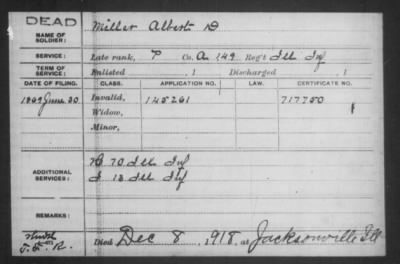 DEAD
NAME OF SOLDIER: Miller Albert D
SERVICE: Late rank, P Co. A 149 Reg't Ill Inf
TERM OF SERVICE: Enlisted , 1 Discharged , 1
DATE OF FILING. CLASS. APPLICATION NO. LAW. CERTIFICATE NO.
1889 June 20 Invalid, 717750
Widow,
Minor,
ADDITIONAL SERVICES: B 70 Ill Inf
I 13 Ill Inf
REMARKS:
Died Dec 8, 1918, at Jacksonville Ill